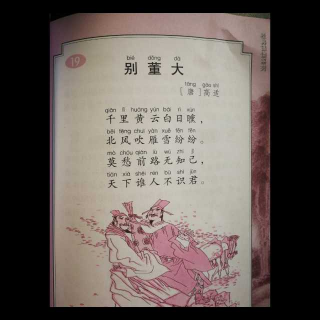 19
bié dǒng dà
别董大
táng gāo shì
[唐]高适
qiān lǐ huáng yún bái rì xūn
千里黄云白日曛，
běi fēng chuī yàn xuě fēn fēn
北风吹雁雪纷纷。
mò chóu qián lù wú zhī jǐ
莫愁前路无知己，
tiān xià shéi rén bù shí jūn
天下谁人不识君。